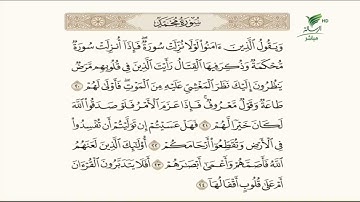 سُورَةُ مُحَمَّد
HD
مباشر
وَيَقُولُ الَّذِينَ ءَامَنُوا لَوْلَا نُزِّلَتْ سُورَةٌ فَإِذَا أُنزِلَتْ سُورَةٌ
مُّحْكَمَةٌ وَذُكِرَ فِيهَا الْقِتَالُ رَأَيْتَ الَّذِينَ فِي قُلُوبِهِم مَّرَضٌ
يَنظُرُونَ إِلَيْكَ نَظَرَ الْمَغْشِيِّ عَلَيْهِ مِنَ الْمَوْتِ فَأَوْلَى لَهُمْ ٢٠
طَاعَةٌ وَقَوْلٌ مَّعْرُوفٌ فَإِذَا عَزَمَ الْأَمْرُ فَلَوْ صَدَقُوا اللَّهَ
لَكَانَ خَيْرًا لَّهُمْ ٢١ فَهَلْ عَسَيْتُمْ إِن تَوَلَّيْتُمْ أَن تُفْسِدُوا
فِي الْأَرْضِ وَتُقَطِّعُوا أَرْحَامَكُمْ ٢٢ أُولَٰئِكَ الَّذِينَ لَعَنَهُمُ
اللَّهُ فَأَصَمَّهُمْ وَأَعْمَى أَبْصَارَهُمْ ٢٣ أَفَلَا يَتَدَبَّرُونَ الْقُرْءَانَ
أَمْ عَلَى قُلُوبٍ أَقْفَالُهَا ٢٤